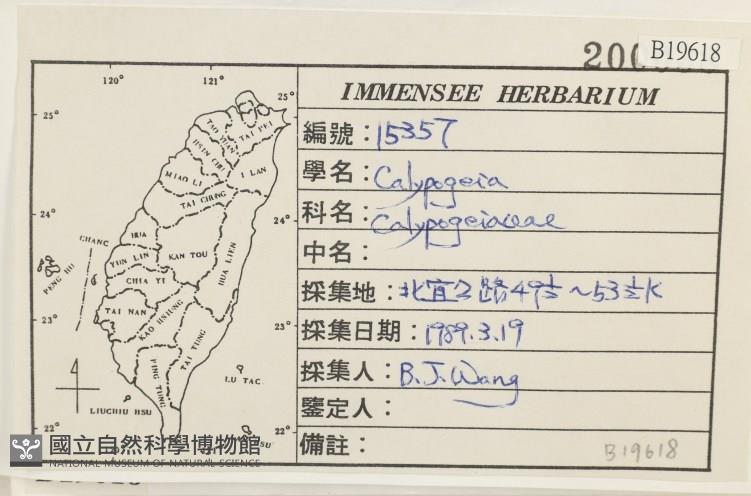 200
B19618
IMMENSEE HERBARIUM
編號：15357
學名：Calypogeia
科名：Calypogeiaceae
中名：
採集地：北宜公路49½~53½K
採集日期：1989.3.19
採集人：B.J.Wang
鑒定人：
備註：
B19618
120°
121°
25°
25°
24°
24°
23°
23°
22°
22°
TAO YUAN
TAI PEI
HSIN CHU
I LAN
MIAO LI
TAI CHUNG
CHANG
HUA
YUN LIN
KAN TOU
HUA LIEN
CHIA YI
PENG HU
TAI NAN
KAO HSIUNG
TAI TUNG
PING TUNG
LU TAO
LIUCHIU HSU
HSU
國立自然科學博物館
NATIONAL MUSEUM OF NATURAL SCIENCE